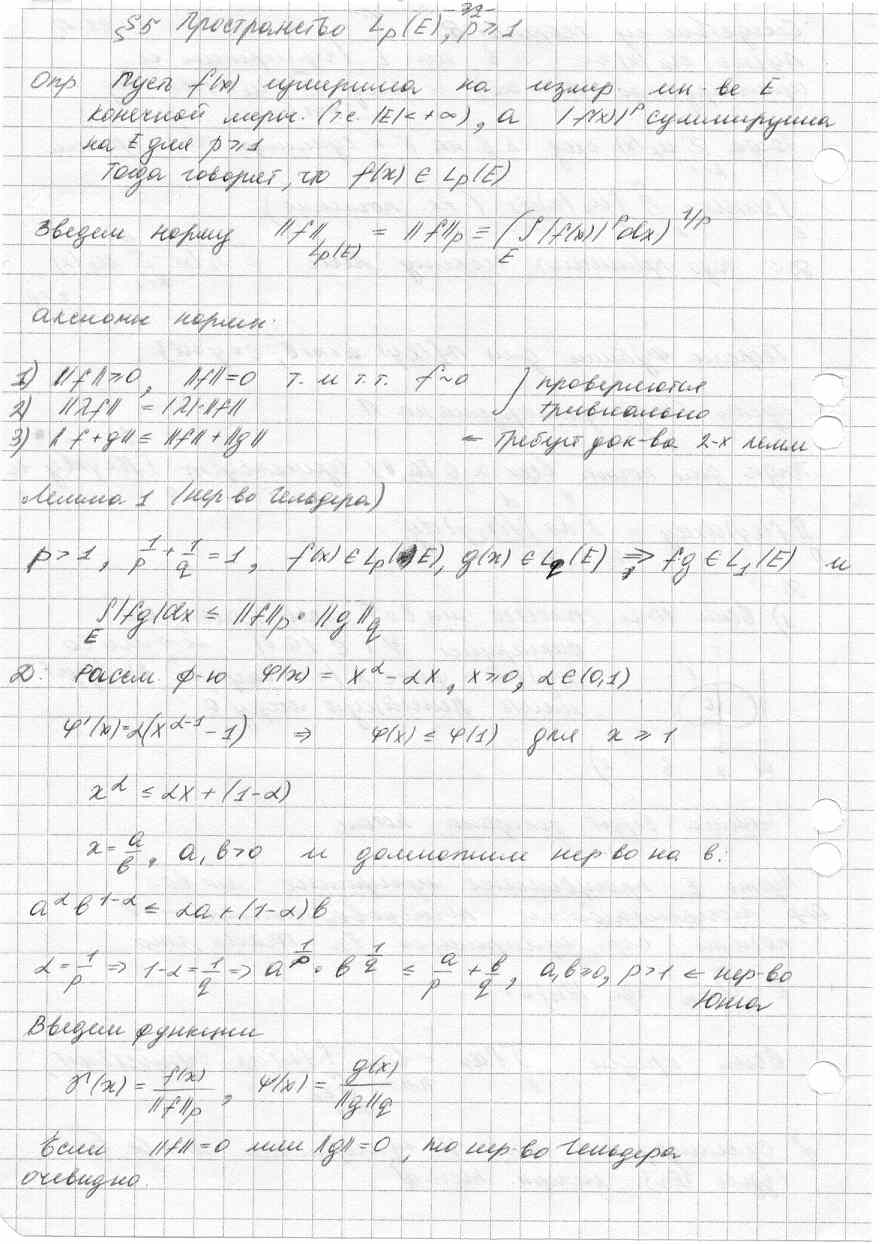 -32-
§5 Пространство L_p(E), p ≥ 1
Опр Пусть f(x) измерима на измер. мн-ве E
конечной меры. (т.е. |E| < +∞), а |f(x)|^p суммируема
на E для p ≥ 1
Тогда говорят, что f(x) ∈ L_p(E)
Введем норму ||f||_{L_p(E)} = ||f||_p ≡ (∫_E |f(x)|^p dx)^{1/p}
Аксиомы нормы:
1) ||f|| ≥ 0, ||f|| = 0 т. и т.т. f ~ 0 } проверяются
2) ||λf|| = |λ|·||f|| тривиально
3) ||f+g|| ≤ ||f|| + ||g|| ← Требует док-ва 2-х лемм
Лемма 1 (нер-во Гельдера)
p > 1, 1/p + 1/q = 1, f(x) ∈ L_p(E), g(x) ∈ L_q(E) ⇒ fg ∈ L_1(E) и
∫_E |fg|dx ≤ ||f||_p · ||g||_q
D: Рассм. ф-ю φ(x) = x^α - αx, x ≥ 0, α ∈ (0,1)
φ'(x) = α(x^{α-1} - 1) ⇒ φ(x) ≤ φ(1) для x ≥ 1
x^α ≤ αx + (1-α)
x = a/b, a, b > 0 и домножим нер-во на b:
a^α b^{1-α} ≤ αa + (1-α)b
α = 1/p ⇒ 1-α = 1/q ⇒ a^{1/p} · b^{1/q} ≤ a/p + b/q, a, b ≥ 0, p > 1 ← нер-во
Юнга
Введем функции
γ(x) = f(x)/||f||_p, ψ(x) = g(x)/||g||_q
Если ||f|| = 0 или ||g|| = 0, то нер-во Гельдера
очевидно.